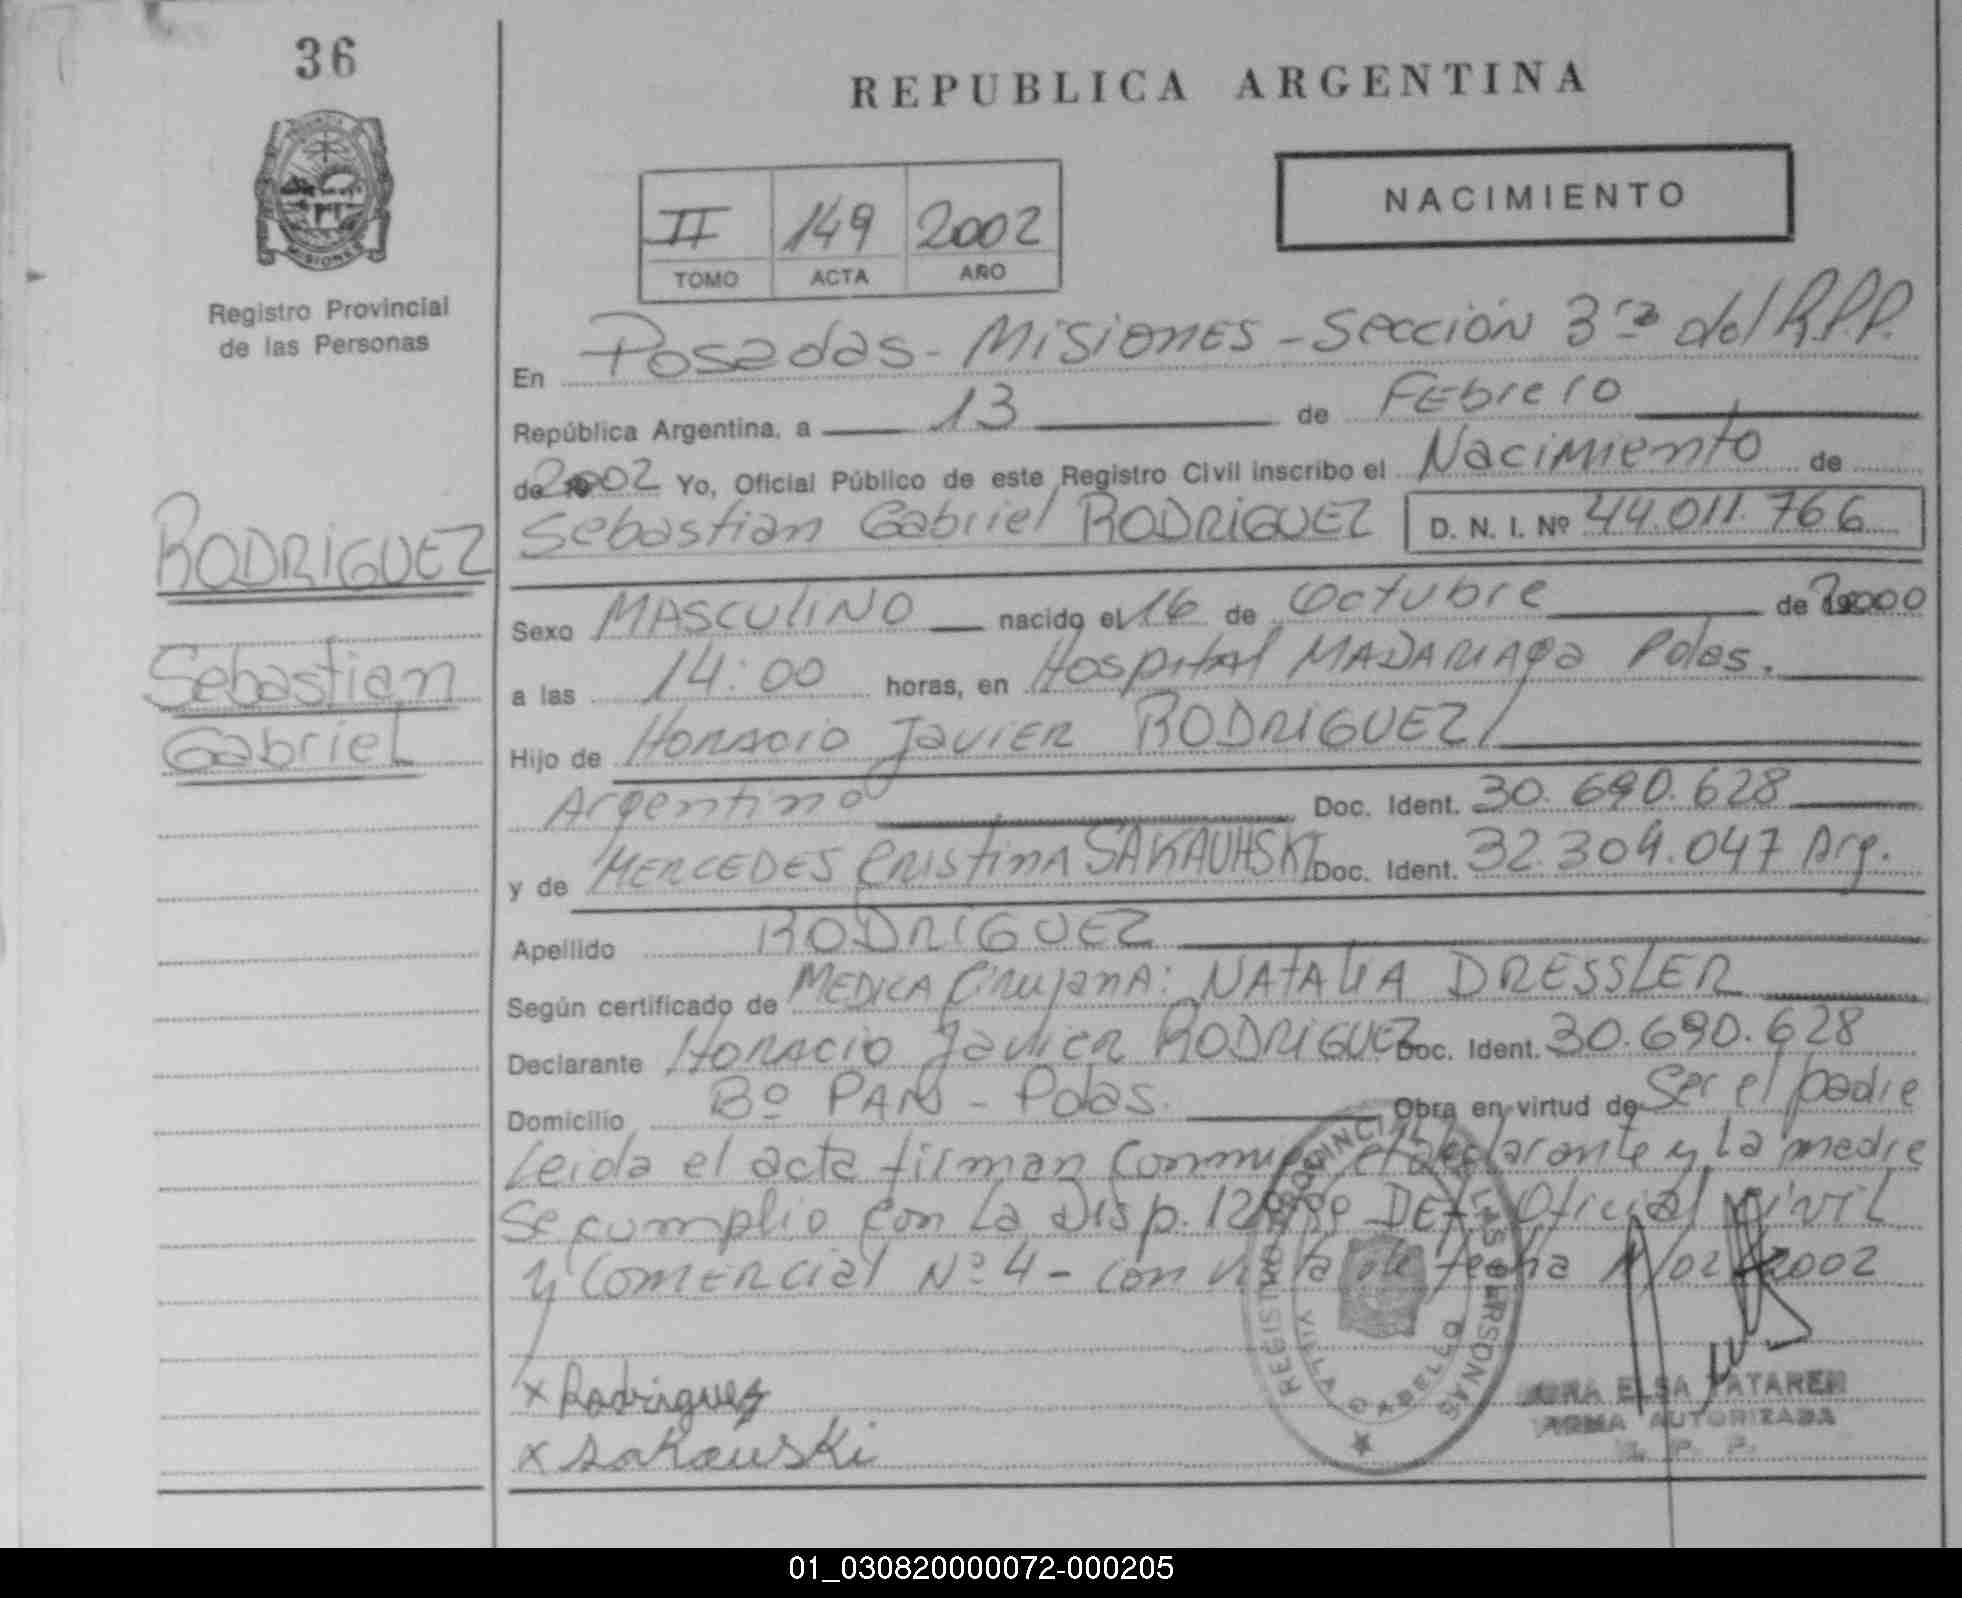 36
REPUBLICA ARGENTINA
NACIMIENTO
II 149 2002
TOMO ACTA AÑO
Registro Provincial
de las Personas
En Posadas - Misiones - Sección 3ra del R.P.P.
República Argentina, a 13 de Febrero
de 2002 Yo, Oficial Público de este Registro Civil inscribo el Nacimiento de
Sebastian Gabriel RODRIGUEZ D. N. I. Nº 44.011.766
RODRIGUEZ
Sebastian
Gabriel
Sexo MASCULINO nacido el 16 de Octubre de 2000
a las 14:00 horas, en Hospital MADARIAGA Pdas.
Hijo de HORACIO Javier RODRIGUEZ
Argentino Doc. Ident. 30.690.628
y de MERCEDES CRISTINA SAKAUHSKI Doc. Ident. 32.304.047 Arg.
Apellido RODRIGUEZ
Según certificado de MEDICA Cirujana: NATALIA DRESSLER
Declarante HORACIO Javier RODRIGUEZ Doc. Ident. 30.690.628
Domicilio Bº PAM - Pdas. Obra en virtud de Ser el padre
Leida el acta firman Conmigo el declarante y la madre
Se cumplio con la Disp. Oficial Civil
y COMERCIAL Nº 4 - con fecha /02/2002
x Rodriguez
x sakauski
REGISTRO PROVINCIAL DE LAS PERSONAS
VILLA CABELLO
ELSA TATAREN
FIRMA AUTORIZADA
R. P. P.
PROVINCIA DE
MISIONES
01_030820000072-000205